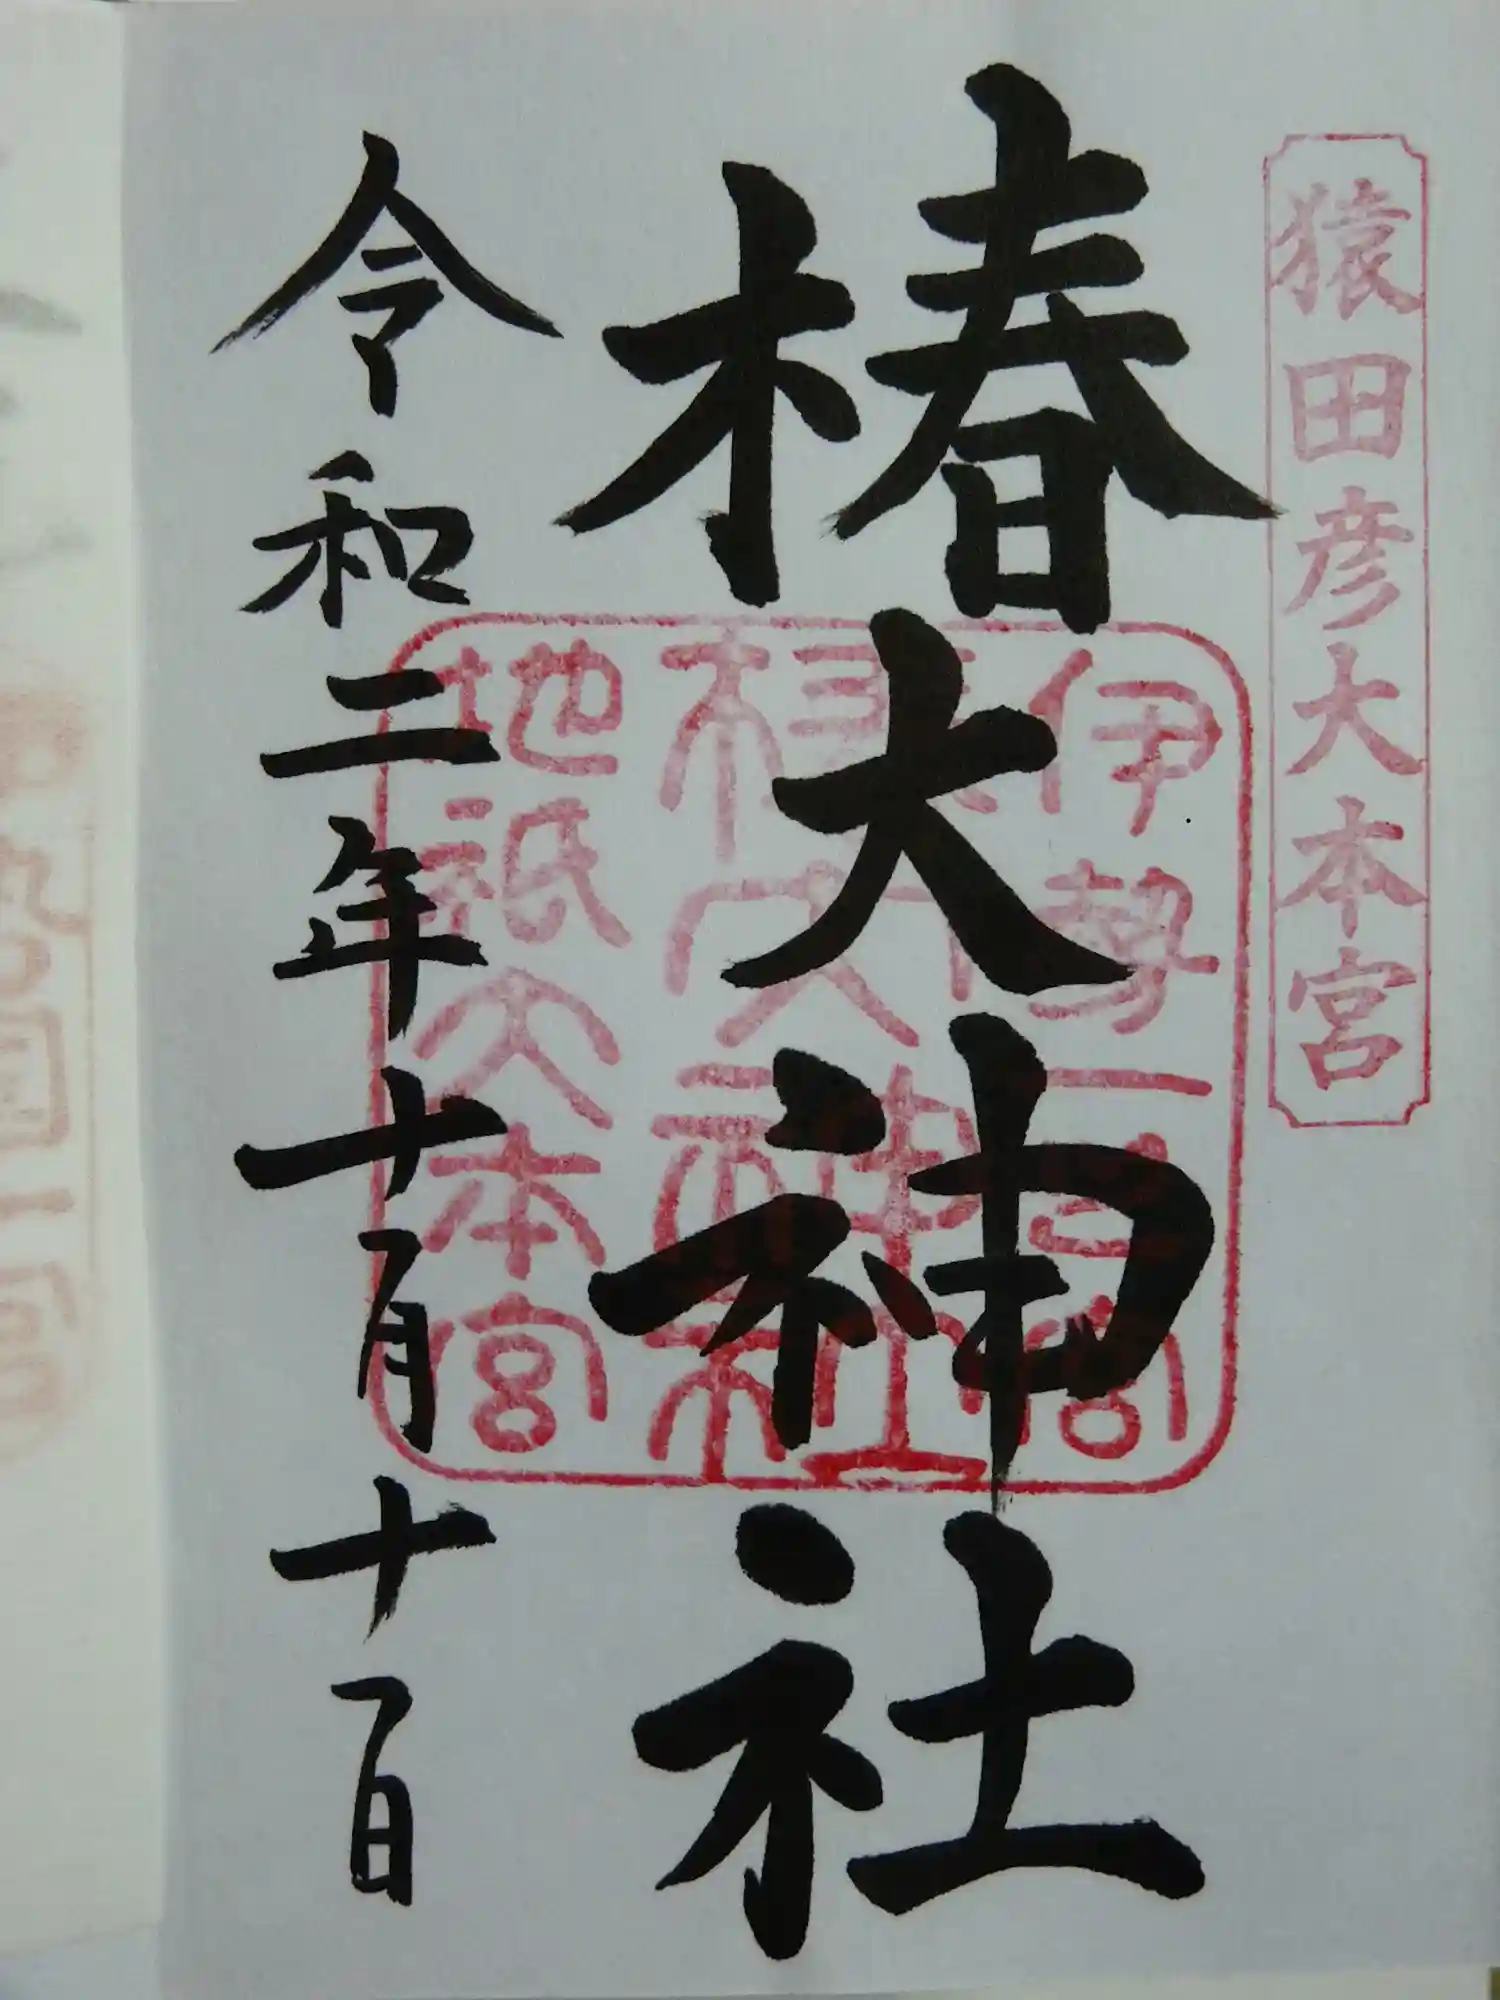 猿田彦大本宮
椿大神社
伊勢一之宮
椿大神社
地祇大本宮
令和二年十一月十一日